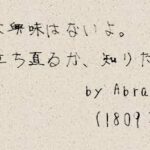 興味はないよ。
立ち直るか、知りた
by Abra
(1809